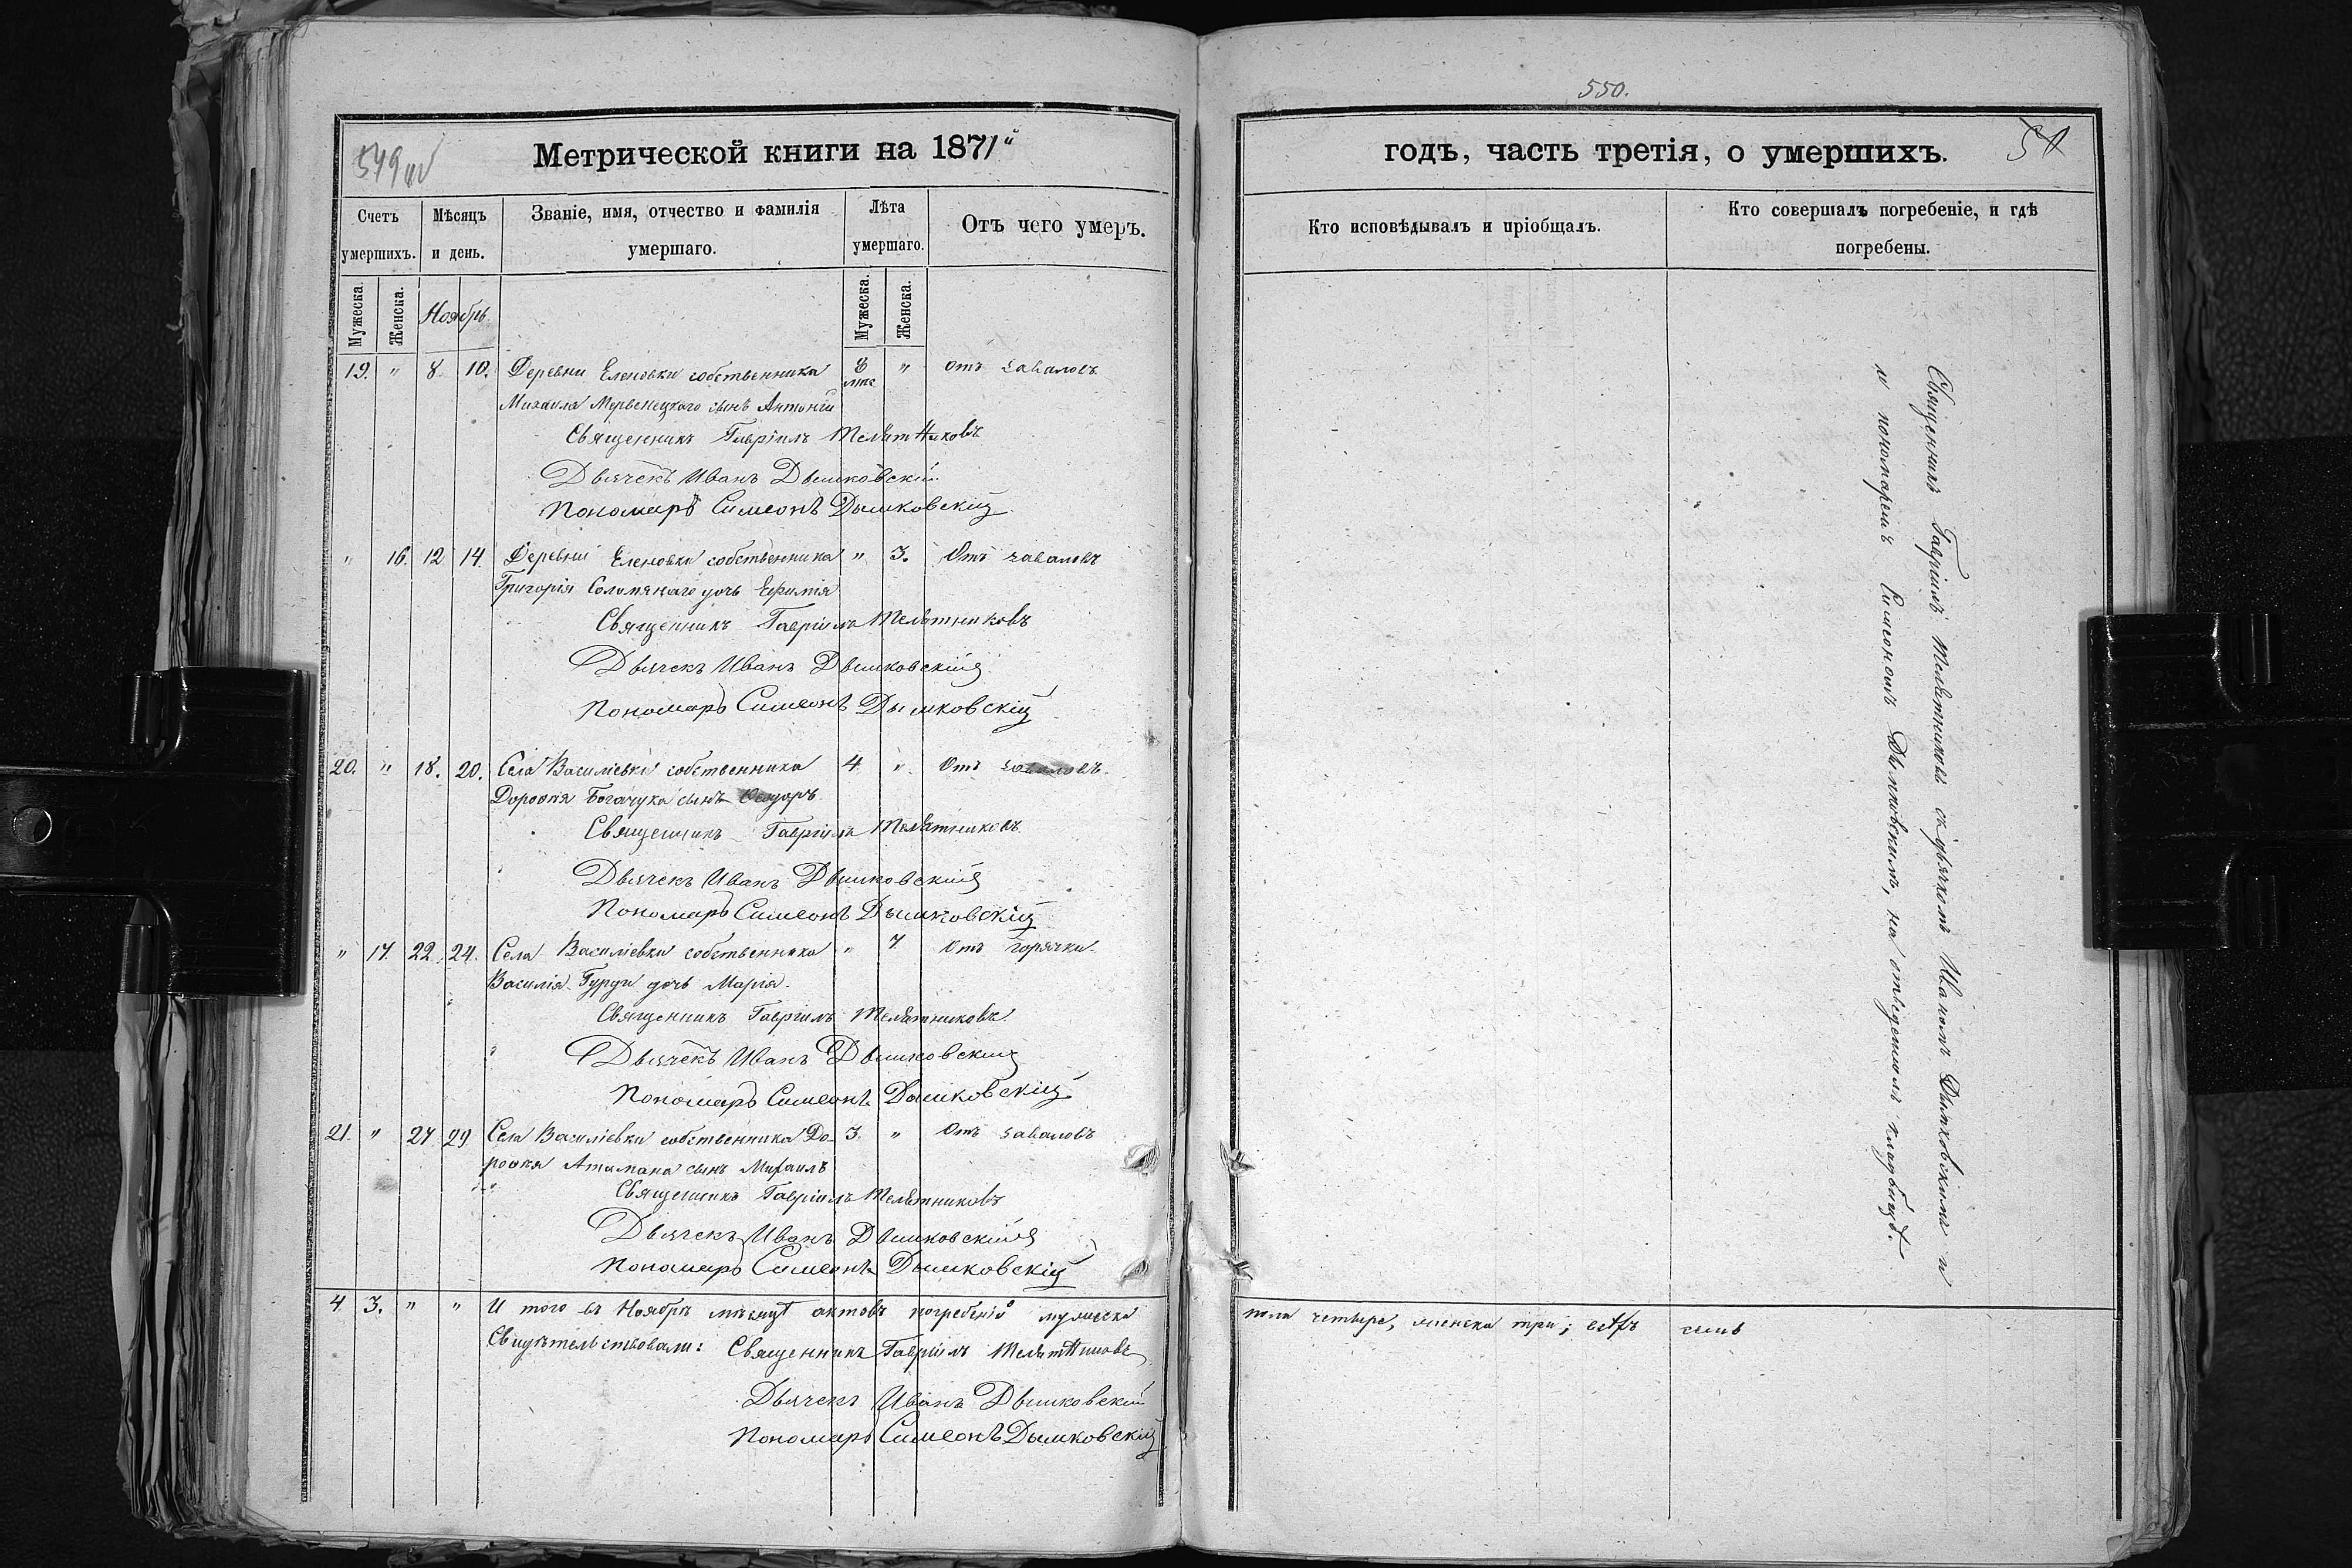 549
Метрической книги на 1871й
Счетъ умершихъ.
Мѣсяцъ и день.
Званіе, имя, отчество и фамилія умершаго.
Лѣта умершаго.
Отъ чего умеръ.
Мужеска.
Женска.
Ноябрь
Мужеска.
Женска.
19. " 8. 10. Деревни Еленовки собственника 8 " Отъ заваловъ
Михаила сынъ Антоній
Священникъ Гавріилъ Телѣтниковъ
Дьячекъ Иванъ Дымковскій
Пономарь Симеонъ Дымковскій
" 16. 12 14 Деревни Еленовки собственника " 3. Отъ заваловъ
Григорія Соломянаго дочь Ефимія
Священникъ Гавріилъ Телѣтниковъ
Дьячекъ Иванъ Дымковскій
Пономарь Симеонъ Дымковскій
20. " 18. 20. Села Василіевки собственника 4 " Отъ заваловъ
Дороѳея Богачука сынъ Ѳеодоръ
Священникъ Гавріилъ Телѣтниковъ
Дьячекъ Иванъ Дымковскій
Пономарь Симеонъ Дымковскій
" 17. 22. 24. Села Василіевки собственника " 7 Отъ горячки
Василія Гурди дочь Марія.
Священникъ Гавріилъ Телѣтниковъ
Дьячекъ Иванъ Дымковскій
Пономарь Симеонъ Дымковскій
21. " 27 29 Села Василіевки собственника До- 3. " Отъ заваловъ
роѳея Атамана сынъ Михаилъ
Священникъ Гавріилъ Телѣтниковъ
Дьячекъ Иванъ Дымковскій
Пономарь Симеонъ Дымковскій
4 3. " " И того въ Ноябрѣ мѣсяцѣ актовъ погребенія мужеска
Свидѣтельствовали: Священникъ Гавріилъ Телѣтниковъ
Дьячекъ Иванъ Дымковскій
Пономарь Симеонъ Дымковскій
550.
годъ, часть третія, о умершихъ.
50
Кто исповѣдывалъ и пріобщалъ.
Кто совершалъ погребеніе, и гдѣ погребены.
Священникъ Гавріилъ Телѣтниковъ съ дьячкомъ Иваномъ Дымковскимъ и
и пономаремъ Симеономъ Дымковскимъ, на отведенномъ кладбищѣ.
пола четыре, женска три; всѣхъ семь